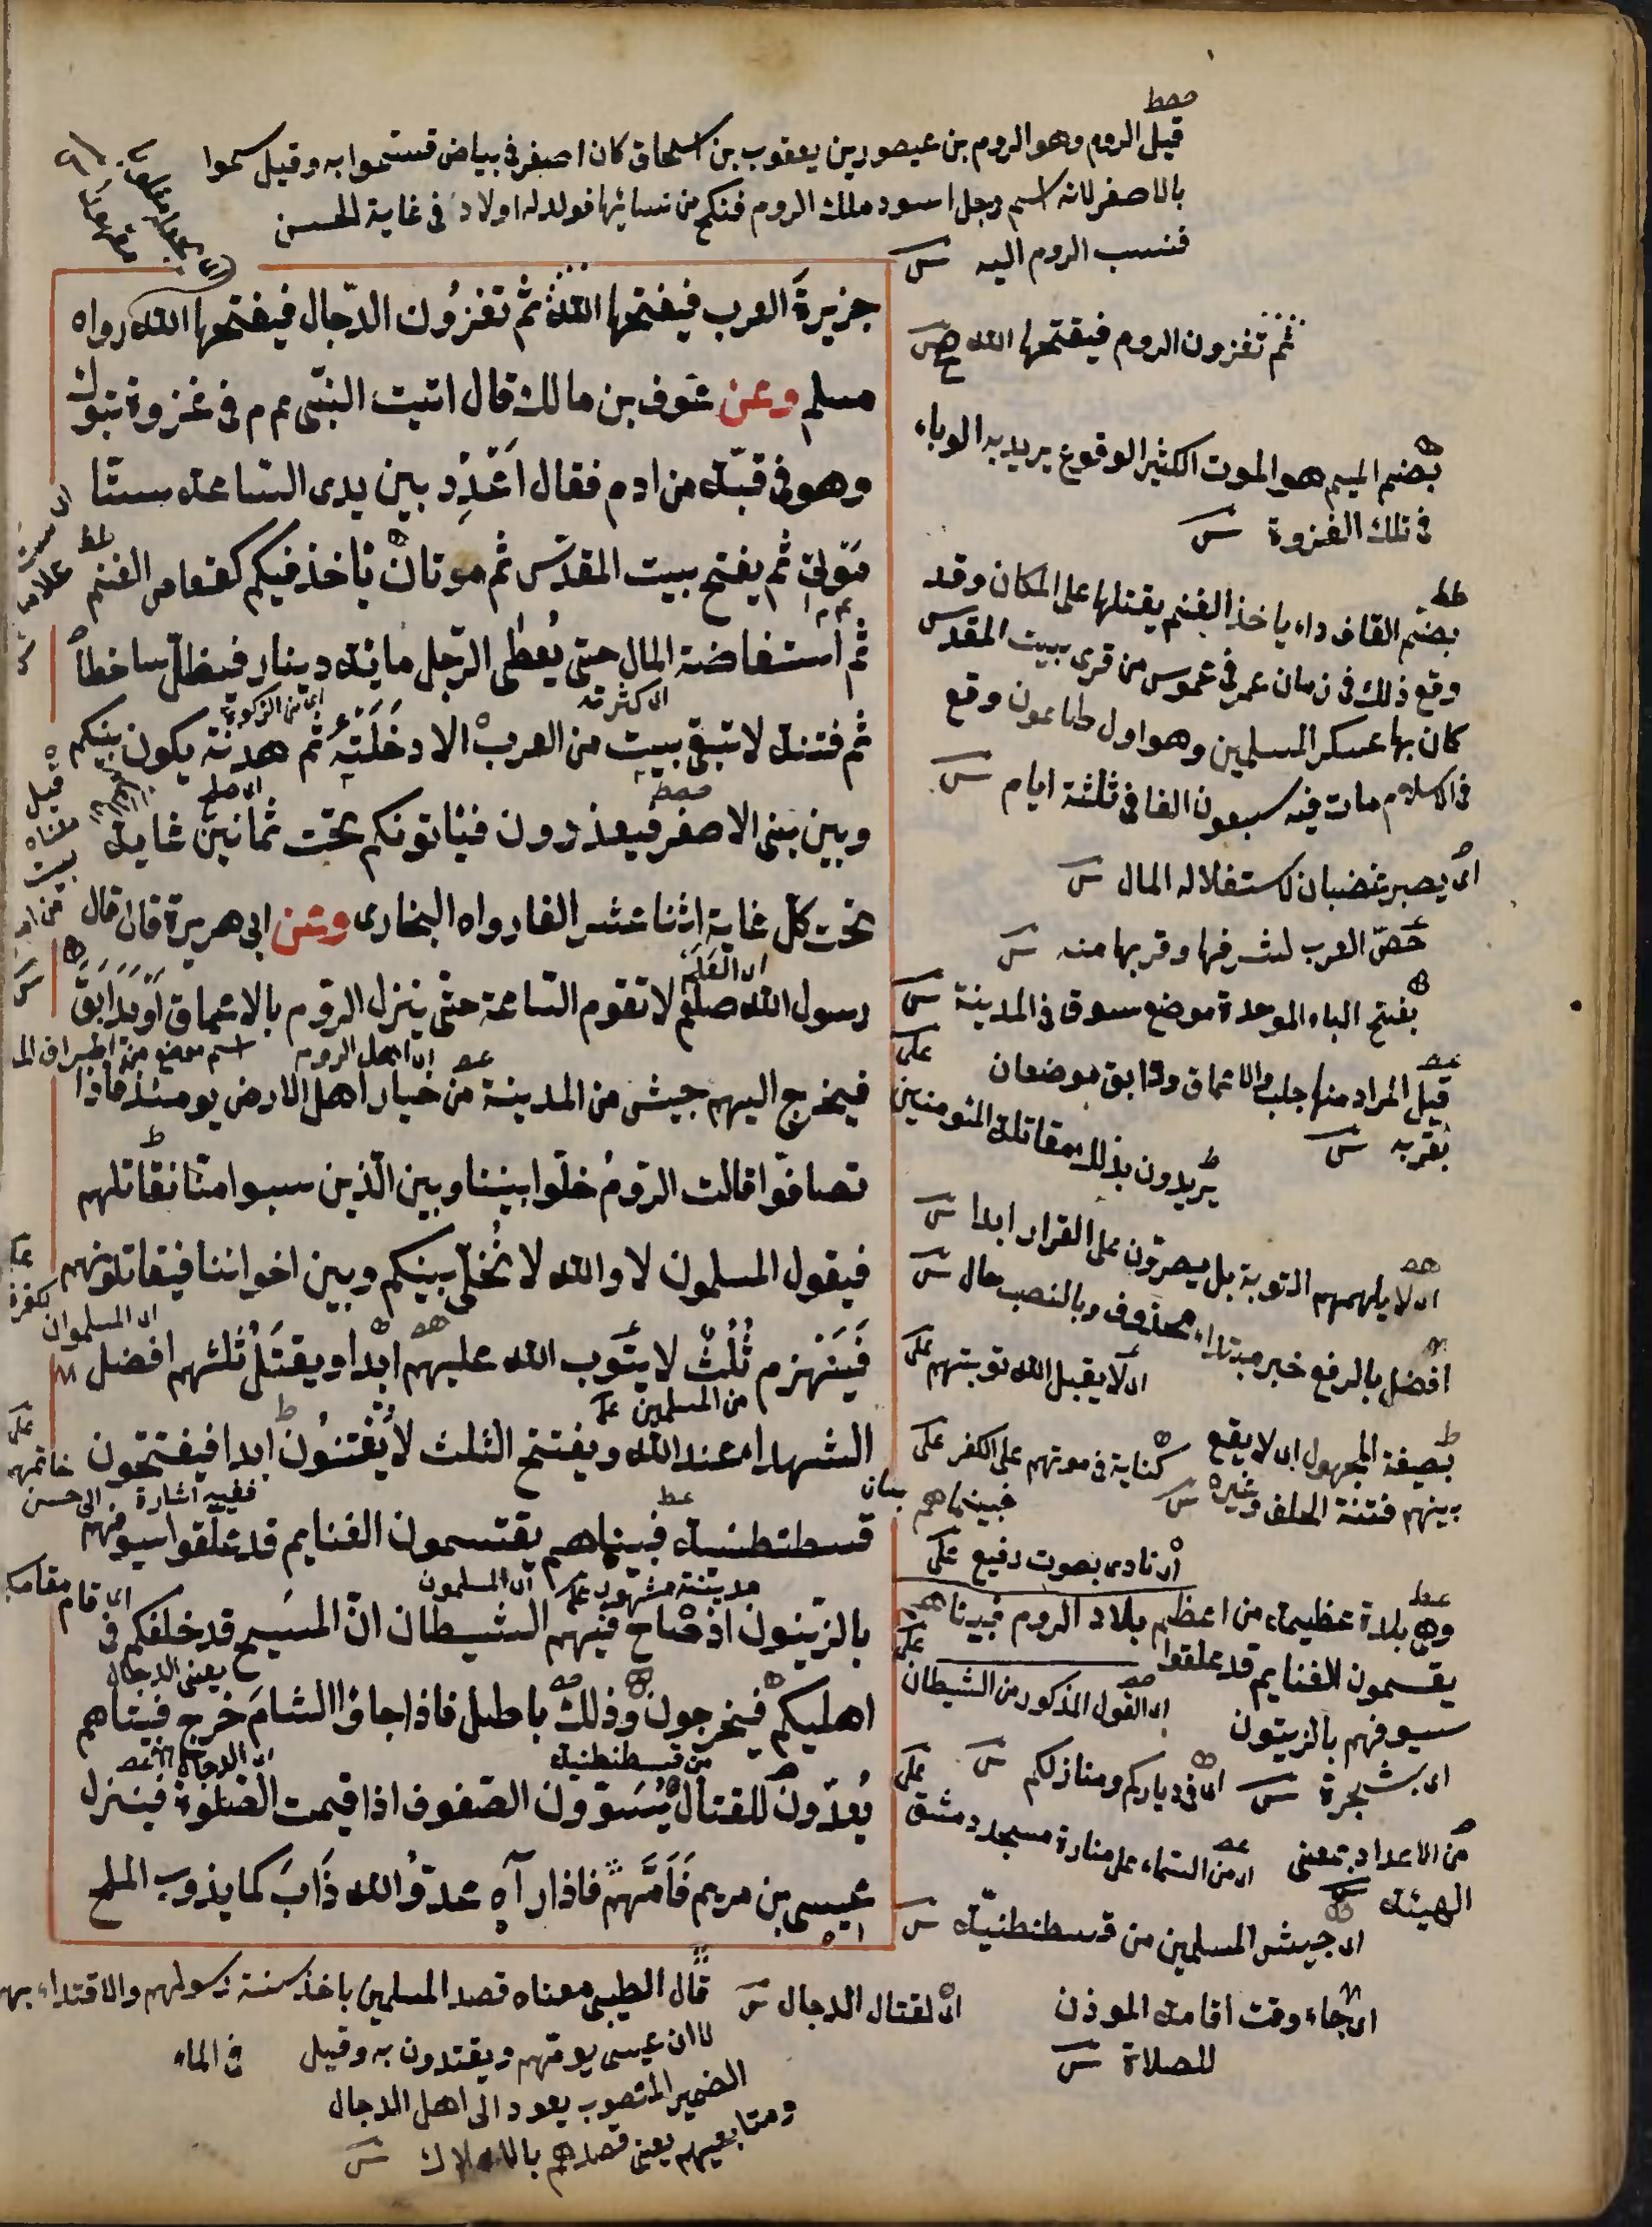 قيل الروم وهو الروم بن عيصو بن يعقوب بن اسحاق كان اصفر في بياض فسموا به وقيل سموا
بالاصفر لانه اسم رجل اسود ملك الروم فنكح من نسائها فولد له اولاد في غاية الحسن
فنسب الروم اليه
جزيرة العرب فيفتحها الله ثم تغزون الدجال فيفتحها الله رواه
مسلم وعن عوف بن مالك قال اتيت النبي عم م في غزوة تبوك
وهو في قبة من ادم فقال اعدد بين يدى الساعة ستا
موتى ثم يفتح بيت المقدس ثم موتان تاخذ فيكم كقعاص الغنم
ثم استفاضة المال حتى يعطى الرجل مائة دينار فيظل ساخطا
اى كثرته
ثم فتنة لا تبقى بيت من العرب الا دخلته ثم هدنة يكون بينكم
اى صلح
وبين بنى الاصفر فيعذرون فيأتونكم تحت ثمانين غاية
تحت كل غاية اثنا عشر الفا رواه البخارى وعن ابى هريرة قال قال
اى العلم
رسول الله صلعم لا تقوم الساعة حتى ينزل الروم بالاعماق او بدابق
اى اهل الروم
فيخرج اليهم جيش من المدينة من خيار اهل الارض يومئذ فاذا
تصافوا قالت الروم خلوا بيننا وبين الذين سبوا منا نقاتلهم
فيقول المسلمون لا والله لا نخلى بينكم وبين اخواننا فيقاتلونهم
اى المسلموان
فينهزم ثلث لا يتوب الله عليهم ابدا ويقتل ثلثهم افضل
من المسلمين
الشهداء عند الله ويفتتح الثلث لا يفتنون ابدا فيفتتحون
ففيه اشارة الى حسن خاتمهم
قسطنطنية فبيناهم يقتسمون الغنايم قد علقوا سيوفهم
مدينة مشهور
اى المسلمون
بالزيتون اذ صاح فيهم الشيطان ان المسيح قد خلفكم فى
اى قام مقامكم
يعنى الدجال
اهليكم فيخرجون وذلك باطل فاذا جاؤا الشام خرج فبيناهم
من قسطنطنية
اى الدجال
يعدون للقتال يسوون الصفوف اذا قيمت الصلوة فينزل
عيسى بن مريم فامهم فاذا رآه عدو الله ذاب كما يذوب الملح
فى الماء
ثم تغزون الروم فيفتحها الله صح
بضم الميم هو الموت الكثير الوقوع يريد به الوباء
فى تلك الغزوة
بضم القاف داء ياخذ الغنم يقتلها على المكان وقد
وقع ذلك فى زمان عمر فى عموس من قرى بيت المقدس
كان بها عسكر المسلمين وهو اول طاعون وقع
فى الاسلام مات فيه سبعون الفا فى ثلثة ايام
اى يصير غضبان لاستقلاله المال
خص العرب لشرفها وقربها منه
بفتح الباء الموحدة موضع سوق فى المدينة
قيل المراد منها حلب والاعماق ودابق موضعان
بقربه
يريدون بذلك مقاتلة المؤمنين
اى لا يلهمهم التوبة بل يصرون على الفرار ابدا
افضل بالرفع خبر مبتداء محذوف وبالنصب حال
اى لا يقبل الله توبتهم
بصيغة المجهول اى لا يقع
بينهم فتنة الحلف وغيره
كناية فى موتهم على الكفر
فبينماهم
اى نادى بصوت رفيع
وهى بلدة عظيمة من اعظم بلاد الروم فبيناهم
يقسمون الغنايم قد علقوا
سيوفهم بالزيتون
اى بشجرة
اى القول المذكور من الشيطان
اى فى دياركم ومنازلكم
من الاعداد بمعنى
الهيئة
اى من السماء على منارة مسجد دمشق
اى جيش المسلمين من قسطنطنية
اى جاء وقت اقامة الموذن
للصلاة
اى لقتال الدجال
قال الطيبى معناه قصد المسلمين باخذ سنة رسولهم والاقتداء بهم
لا ان عيسى يومهم ويقتدون به وقيل
الضمير المنصوب يعود الى اهل الدجال
ومتابعيهم يعنى قصدهم بالاهلاك